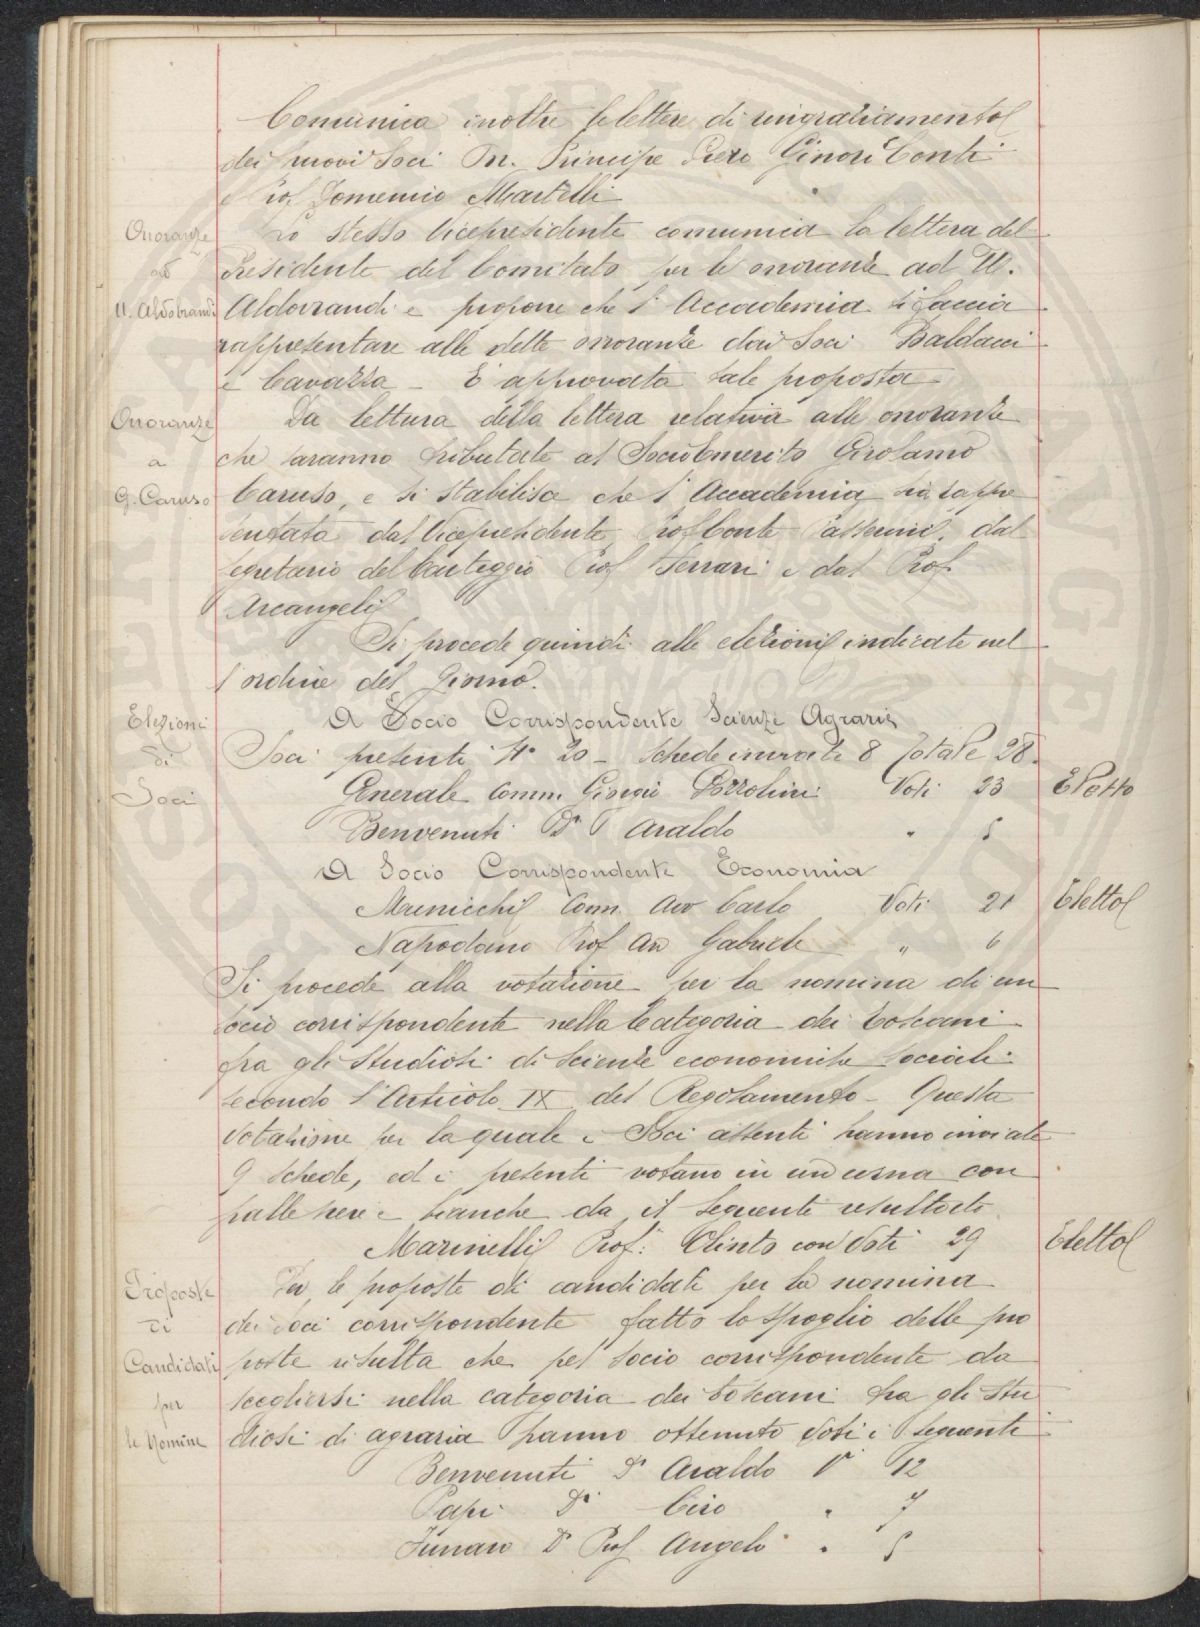 Comunica inoltre le lettere di ringraziamento
dei nuovi Soci On. Principe Piero Ginori Conti
e Prof. Domenico Martelli
Onoranze
ad
U. Aldobrandi
Lo stesso Vicepresidente comunica la lettera del
Presidente del Comitato per le onoranze ad U.
Aldovrandi e propone che l'Accademia si faccia
rappresentare alle dette onoranze dai Soci Baldacci
e Cavazza - E' approvata tale proposta
Onoranze
a
G. Caruso
Da lettura della lettera relativa alle onoranze
che saranno tributate al Socio Emerito Girolamo
Caruso, e si stabilisce che l'Accademia sia rappre
sentata dal Vicepresidente Prof Conte Passerini, dal
Segretario del Carteggio Prof Ferrari e dal Prof.
Arcangeli
Si procede quindi alle elezioni indicate nel
l'ordine del Giorno.
Elezioni
di
Soci
A Socio Corrispondente Scienze Agrarie
Soci presenti N° 20 - Schede inviate 8 Totale 28.
Generale Comm. Giorgio Pozzolini Voti 23 Eletto
Benvenuti Dr Araldo " 5
A Socio Corrispondente Economia
Municchi Comm. Avv Carlo Voti 21 Eletto
Napodano Prof Avv Gabriele " 6
Si procede alla votazione per la nomina di un
socio corrispondente nella Categoria dei Toscani
fra gli Studiosi di Scienze economiche sociali
secondo l'Articolo IX del Regolamento - Questa
votazione per la quale i Soci assenti hanno inviate
9 schede, ed i presenti votano in un urna con
palle nere e bianche da il seguente resultato
Marinelli Prof: Olinto con Voti 29 Eletto
Proposte
di
Candidati
per
le Nomine
Per le proposte di candidati per la nomina
dei Soci corrispondente fatto lo spoglio delle pro
poste risulta che pel socio corrispondente da
scegliersi nella categoria dei Toscani fra gli stu
diosi di agraria hanno ottenuto Voti i seguenti
Benvenuti Dr Araldo V 12
Papi Dr Ciro " 7
Funaro Dr Prof Angelo " 5